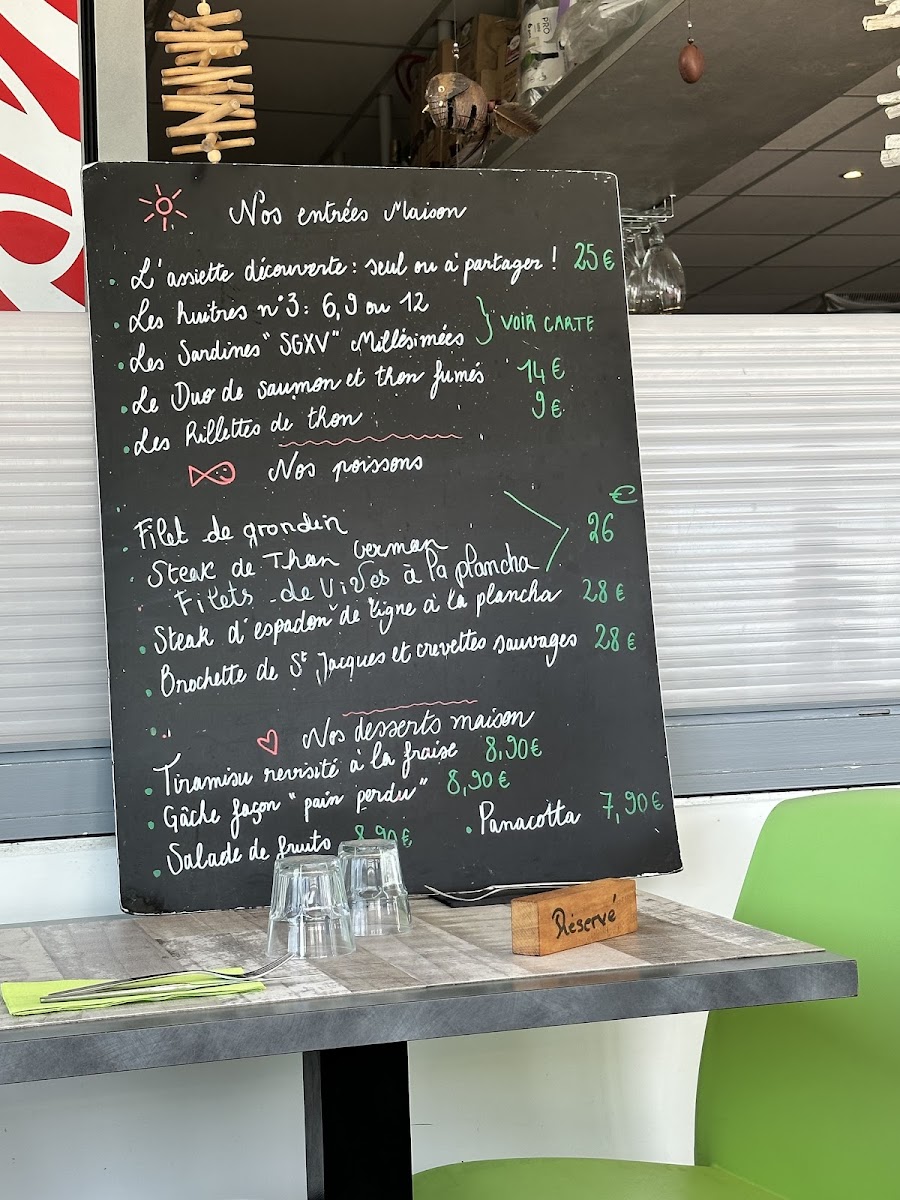 Nos entrées Maison
L'assiette découverte : seul ou à partager ! 25 €
Les huitres n°3 : 6, 9 ou 12
VOIR CARTE
Les Sardines "SGXV" Millésimées
Le Duo de saumon et thon fumés 14 €
Les Rillettes de thon 9 €
Nos poissons
€
Filet de grondin 26
Steak de Thon Germon
Filets de Vives à la plancha
Steak d'espadon de ligne à la plancha 28 €
Brochette de St Jacques et crevettes sauvages 28 €
Nos desserts maison
Tiramisu revisité à la fraise 8,90 €
Gâche façon "pain perdu" 8,90 €
Panacotta 7,90 €
Salade de fruits 8,90 €
Réservé
PRO